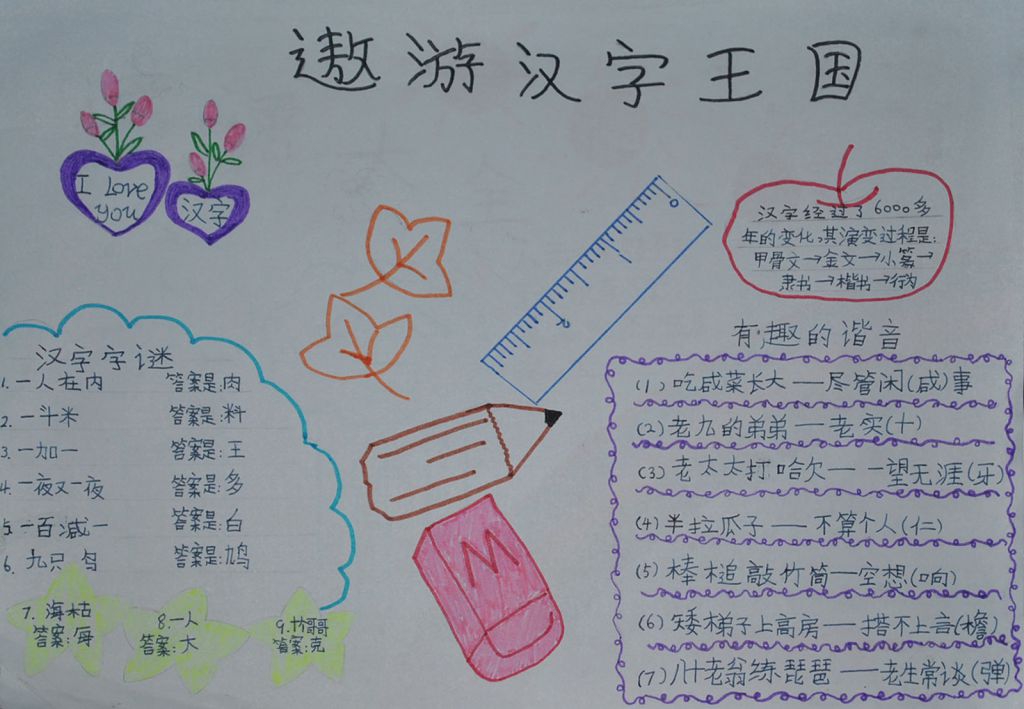 遨游汉字王国
I Love
you
汉字
汉字经过了6000多
年的变化,其演变过程是:
甲骨文→金文→小篆→
隶书→楷书→行书
汉字字谜
1.一人在内 答案是:肉
2.一斗米 答案是:料
3.一加一 答案是:王
4.一夜又一夜 答案是:多
5.一百减一 答案是:白
6.九只鸟 答案是:鸠
7.海枯
答案:每
8.一人
答案:大
9.廿哥哥
答案:克
有趣的谐音
(1)吃咸菜长大——尽管闲(咸)事
(2)老九的弟弟——老实(十)
(3)老太太打哈欠——一望无涯(牙)
(4)半拉瓜子——不算个人(仁)
(5)棒槌敲竹筒—空想(响)
(6)矮梯子上高房——搭不上言(檐)
(7)八十老翁练琵琶——老生常谈(弹)
0
M